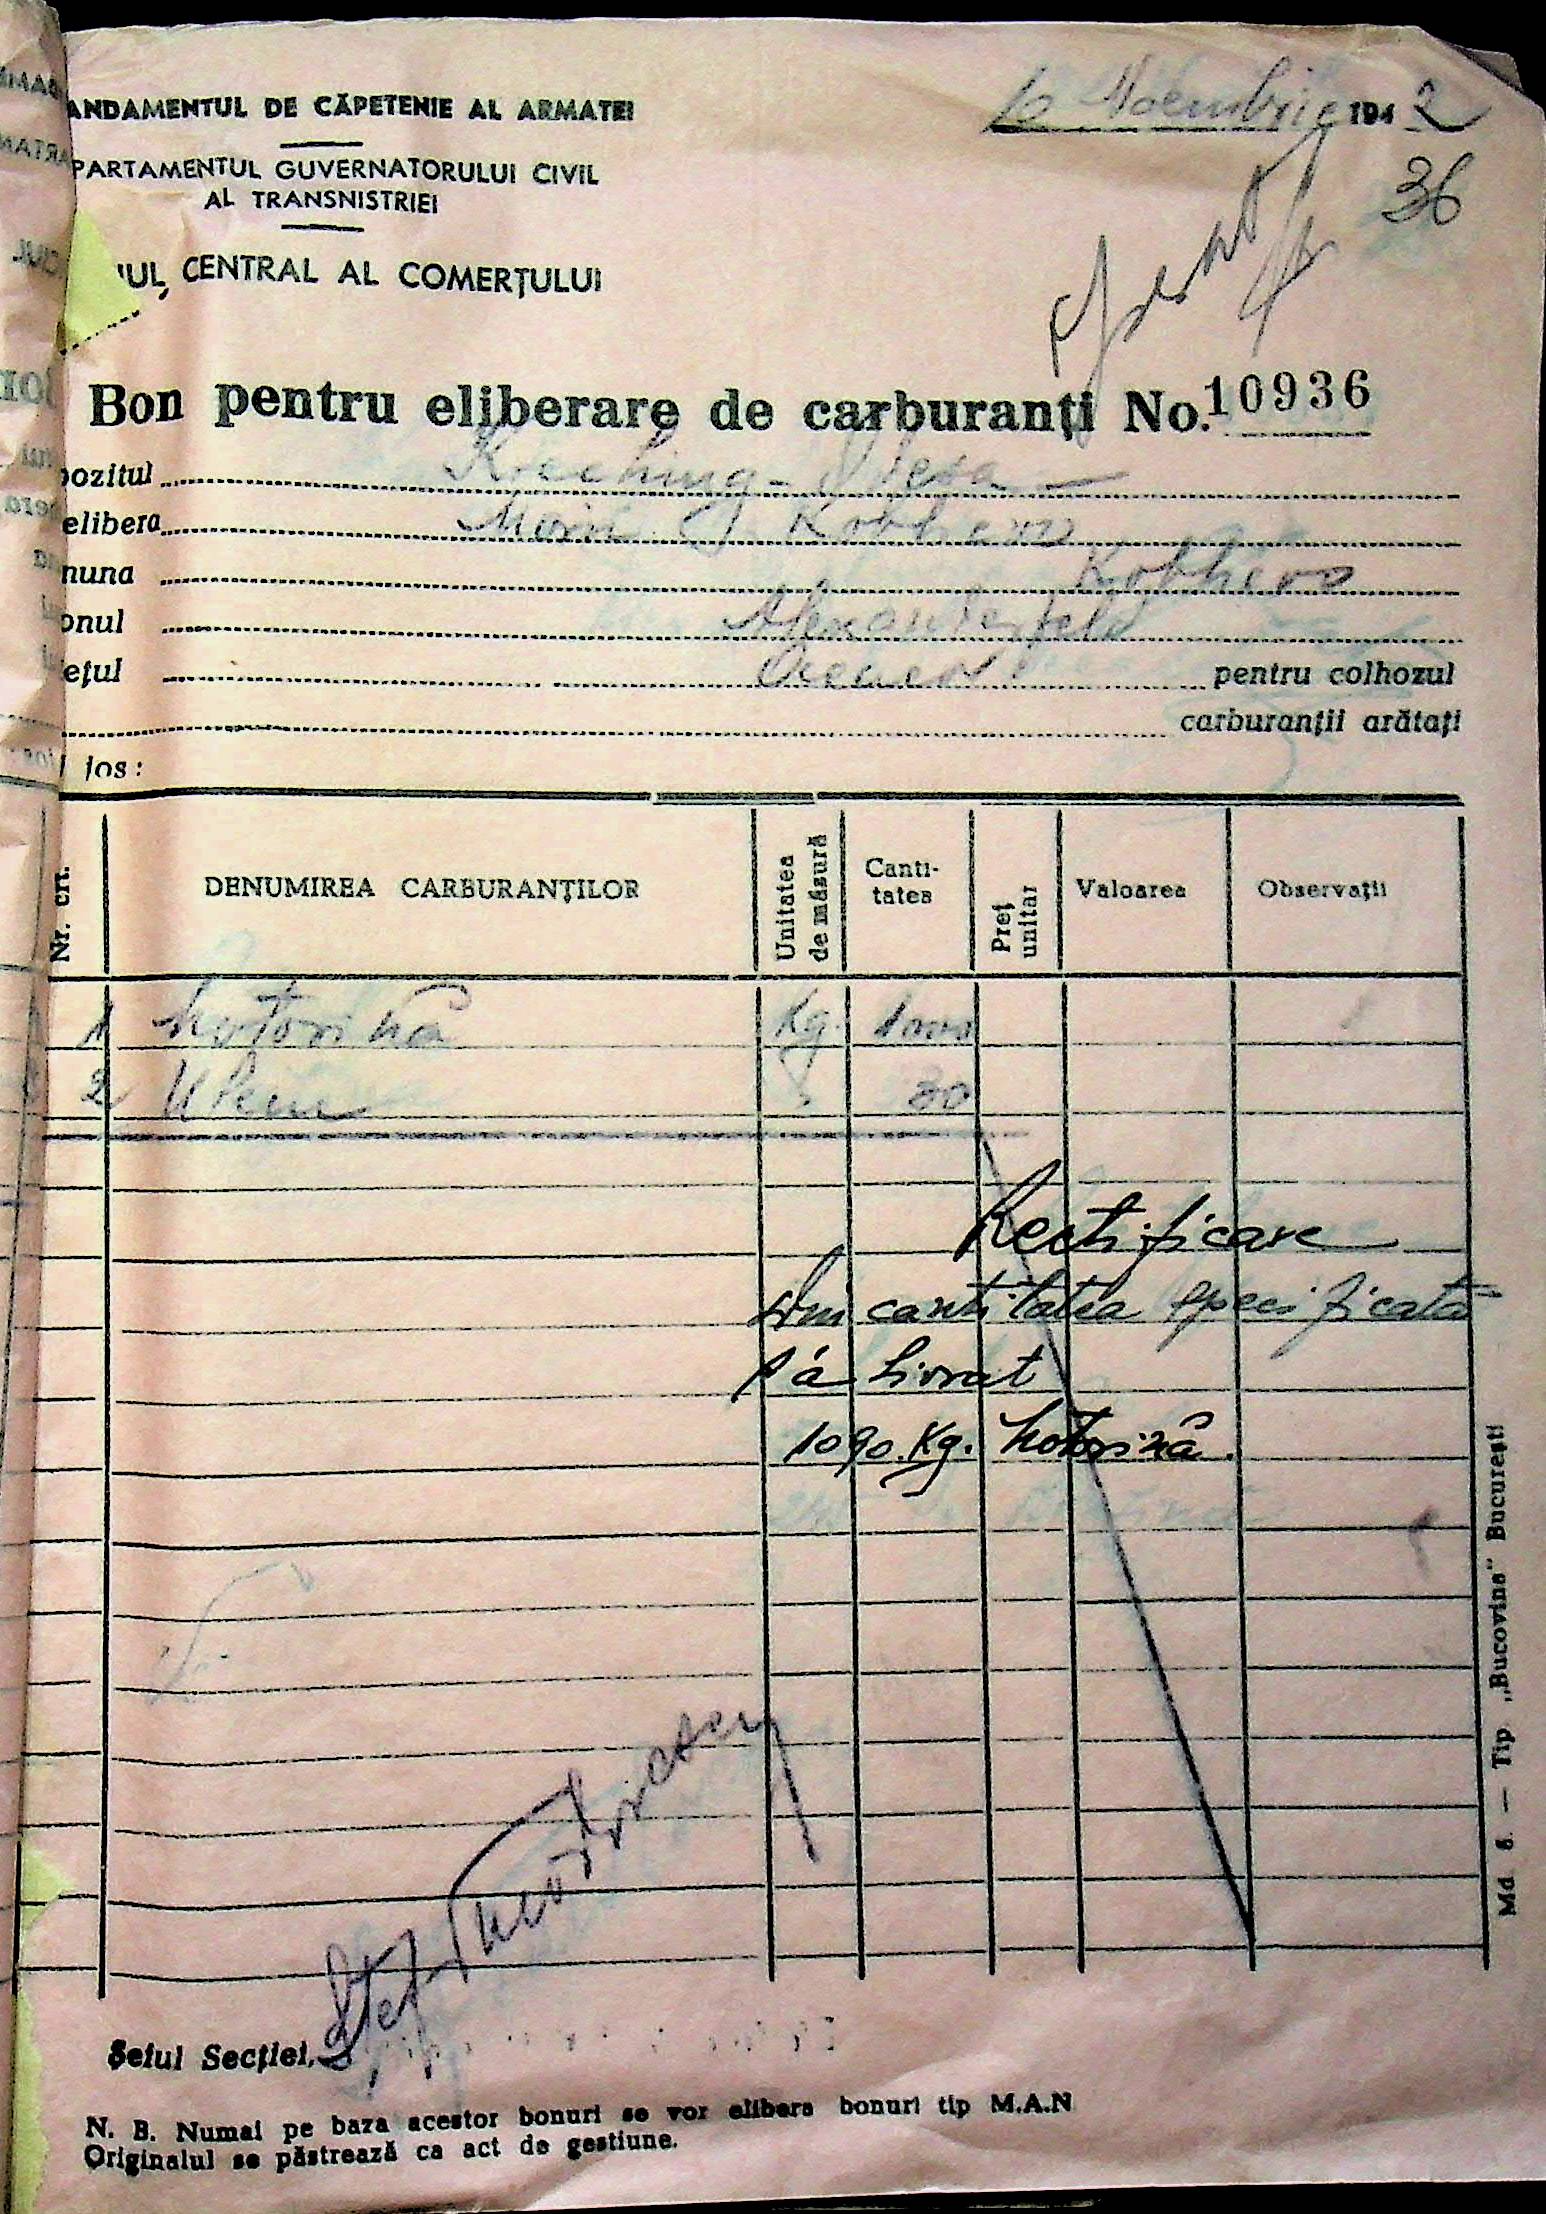 ANDAMENTUL DE CĂPETENIE AL ARMATEI
10 Noembrie 1942
PARTAMENTUL GUVERNATORULUI CIVIL
AL TRANSNISTRIEI
36
IUL CENTRAL AL COMERȚULUI
Bon pentru eliberare de carburanți No. 10936
pozitul
elibera
muna
onul
ețul pentru colhozul
carburanții arătați
jos:
Nr. crt. DENUMIREA CARBURANȚILOR Unitatea de măsură Canti-tatea Preț unitar Valoarea Observații
1 Motorină Kg. 1000
2 Uleiu 30
Rectificare
Din cantitatea specificată
s'a livrat
1090 Kg. Motorină.
Șeful Secției,
N. B. Numai pe baza acestor bonuri se vor elibera bonuri tip M.A.N
Originalul se păstrează ca act de gestiune.
Md. 6. — Tip „Bucovina" București